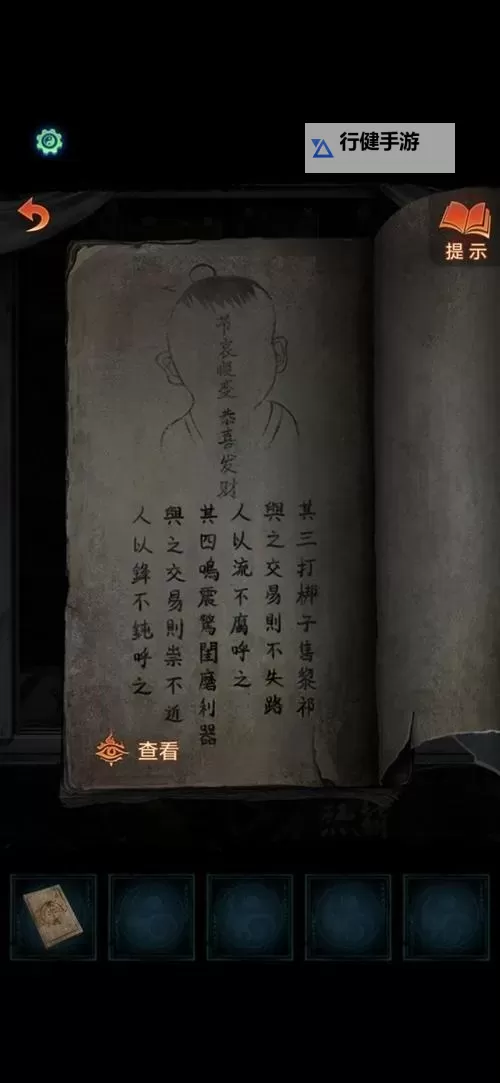 行健手游
提示
节哀顺变 恭喜发财
其三打梆子售黎祁
與之交易則不失路
人以流不腐呼之
其四鳴震驚閨磨利器
與之交易則祟不近
人以鋒不鈍呼之
查看